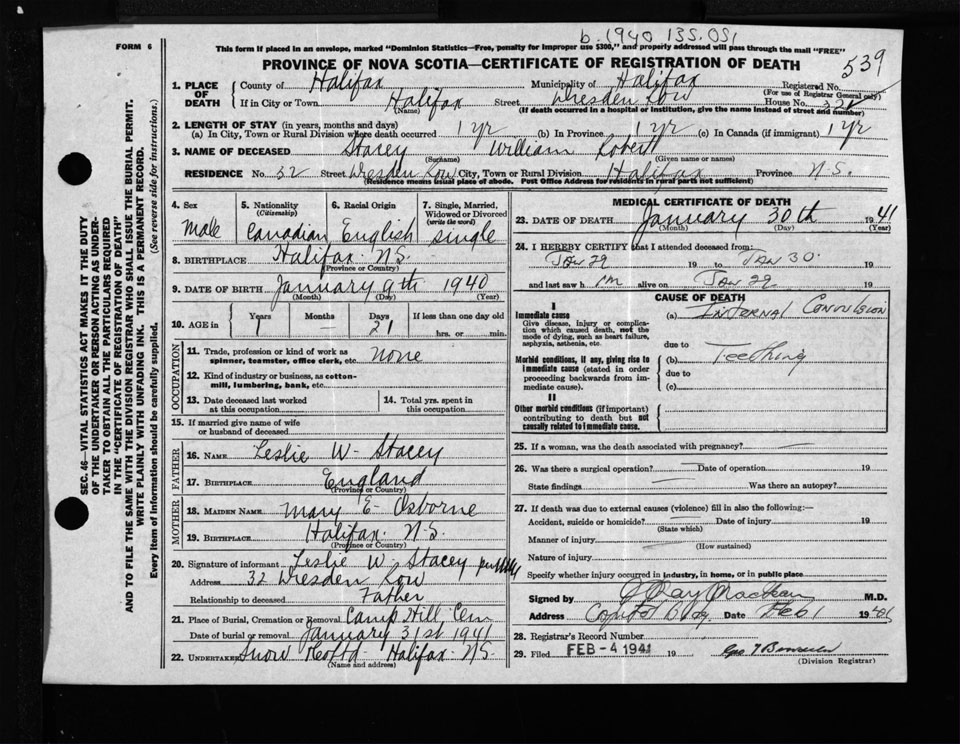 b. 1940 135.051
FORM 6
This form if placed in an envelope, marked "Dominion Statistics—Free, penalty for improper use $300," and properly addressed will pass through the mail "FREE"
PROVINCE OF NOVA SCOTIA—CERTIFICATE OF REGISTRATION OF DEATH
539
1. PLACE OF DEATH
County of Halifax Municipality of Halifax Registered No.
(For use of Registrar General only)
If in City or Town Halifax Street Dresden Row House No. 32
(Name) (If death occurred in a hospital or institution, give the name instead of street and number)
2. LENGTH OF STAY (in years, months and days)
(a) In City, Town or Rural Division where death occurred 1 yr (b) In Province 1 yr (c) In Canada (if immigrant) 1 yr
3. NAME OF DECEASED Stacey William Robert
(Surname) (Given name or names)
RESIDENCE No. 32 Street Dresden Row City, Town or Rural Division Halifax Province N.S.
(Residence means usual place of abode. Post Office Address for residents in rural parts not sufficient)
4. Sex 5. Nationality (Citizenship) 6. Racial Origin 7. Single, Married, Widowed or Divorced (write the word)
Male Canadian English Single
8. BIRTHPLACE Halifax N.S.
(Province or Country)
9. DATE OF BIRTH January 9th 1940
(Month) (Day) (Year)
10. AGE in Years Months Days If less than one day old
1 — 21 hrs. or min.
OCCUPATION
11. Trade, profession or kind of work as spinner, teamster, office clerk, etc. none
12. Kind of industry or business, as cotton-mill, lumbering, bank, etc.
13. Date deceased last worked at this occupation
14. Total yrs. spent in this occupation
15. If married give name of wife or husband of deceased
FATHER
16. NAME Leslie W. Stacey
17. BIRTHPLACE England
(Province or Country)
MOTHER
18. MAIDEN NAME Mary E. Osborne
19. BIRTHPLACE Halifax N.S.
(Province or Country)
20. Signature of informant Leslie W. Stacey
Address 32 Dresden Row
Relationship to deceased Father
21. Place of Burial, Cremation or Removal Camp Hill Cem
Date of burial or removal January 31st 1941
22. UNDERTAKER Snow Halifax N.S.
(Name and address)
MEDICAL CERTIFICATE OF DEATH
23. DATE OF DEATH January 30th 1941
(Month) (Day) (Year)
24. I HEREBY CERTIFY that I attended deceased from:
Jan 29 19 to Jan 30. 19
and last saw h im alive on Jan 29 19
CAUSE OF DEATH
I
Immediate cause
Give disease, injury or complication which caused death, not the mode of dying, such as heart failure, asphyxia, asthenia, etc.
(a) Internal Convulsion
due to
Morbid conditions, if any, giving rise to immediate cause (stated in order proceeding backwards from immediate cause).
(b) Teething
due to
(c)
II
Other morbid conditions (if important) contributing to death but not causally related to immediate cause.
25. If a woman, was the death associated with pregnancy?
26. Was there a surgical operation? — Date of operation 19
State findings Was there an autopsy?
27. If death was due to external causes (violence) fill in also the following:—
Accident, suicide or homicide? Date of injury 19
(State which)
Manner of injury
(How sustained)
Nature of injury
Specify whether injury occurred in industry, in home, or in public place
Signed by M.D.
Address Capitol Bldg. Date Feb 1 19
28. Registrar's Record Number
29. Filed FEB - 4 1941 19
(Division Registrar)
SEC. 46—VITAL STATISTICS ACT MAKES IT THE DUTY
OF THE UNDERTAKER OR PERSON ACTING AS UNDER-
TAKER TO OBTAIN ALL THE PARTICULARS REQUIRED
IN THE "CERTIFICATE OF REGISTRATION OF DEATH"
AND TO FILE THE SAME WITH THE DIVISION REGISTRAR WHO SHALL ISSUE THE BURIAL PERMIT.
WRITE PLAINLY WITH UNFADING INK. THIS IS A PERMANENT RECORD.
Every item of Information should be carefully supplied. (See reverse side for instructions.)